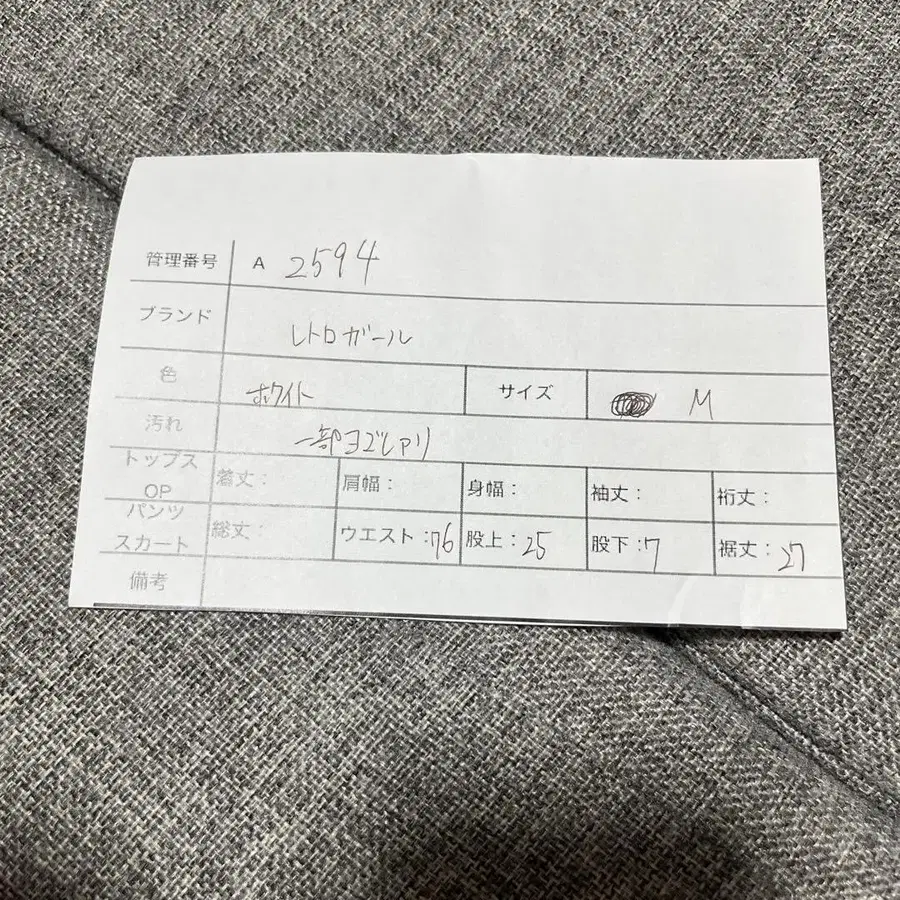 管理番号 A 2594
ブランド レトロガール
色 ホワイト サイズ M
汚れ 一部ヨゴレアリ
トップス OP 着丈: 肩幅: 身幅: 袖丈: 裄丈:
パンツ スカート 総丈: ウエスト:76 股上:25 股下:7 裾丈:27
備考